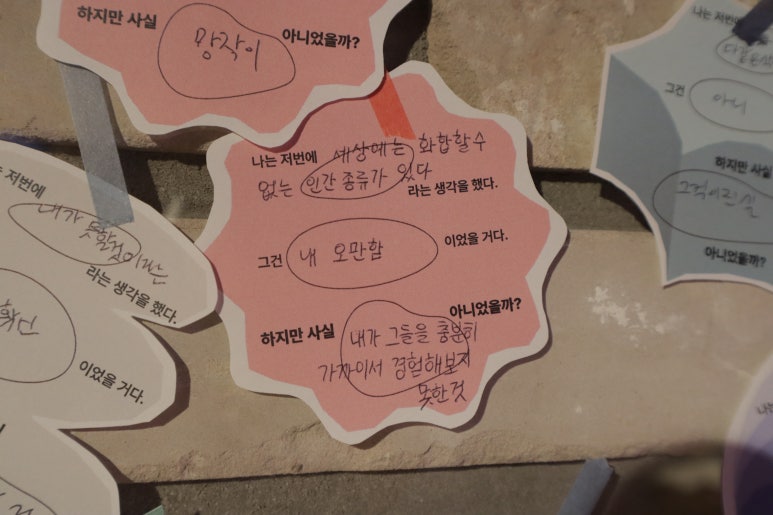 하지만 사실 망작이 아니었을까?
나는 저번에 세상에는 화합할 수
없는 인간 종류가 있다 라는 생각을 했다.
그건 내 오만함 이었을 거다.
하지만 사실 아니었을까?
내가 그들을 충분히
가까이서 경험해보지
못한것
저번에
내가 못할것이라는
라는 생각을 했다.
이었을 거다.
나는 저번에
그건 아니
하지만 사실
아니었을까?